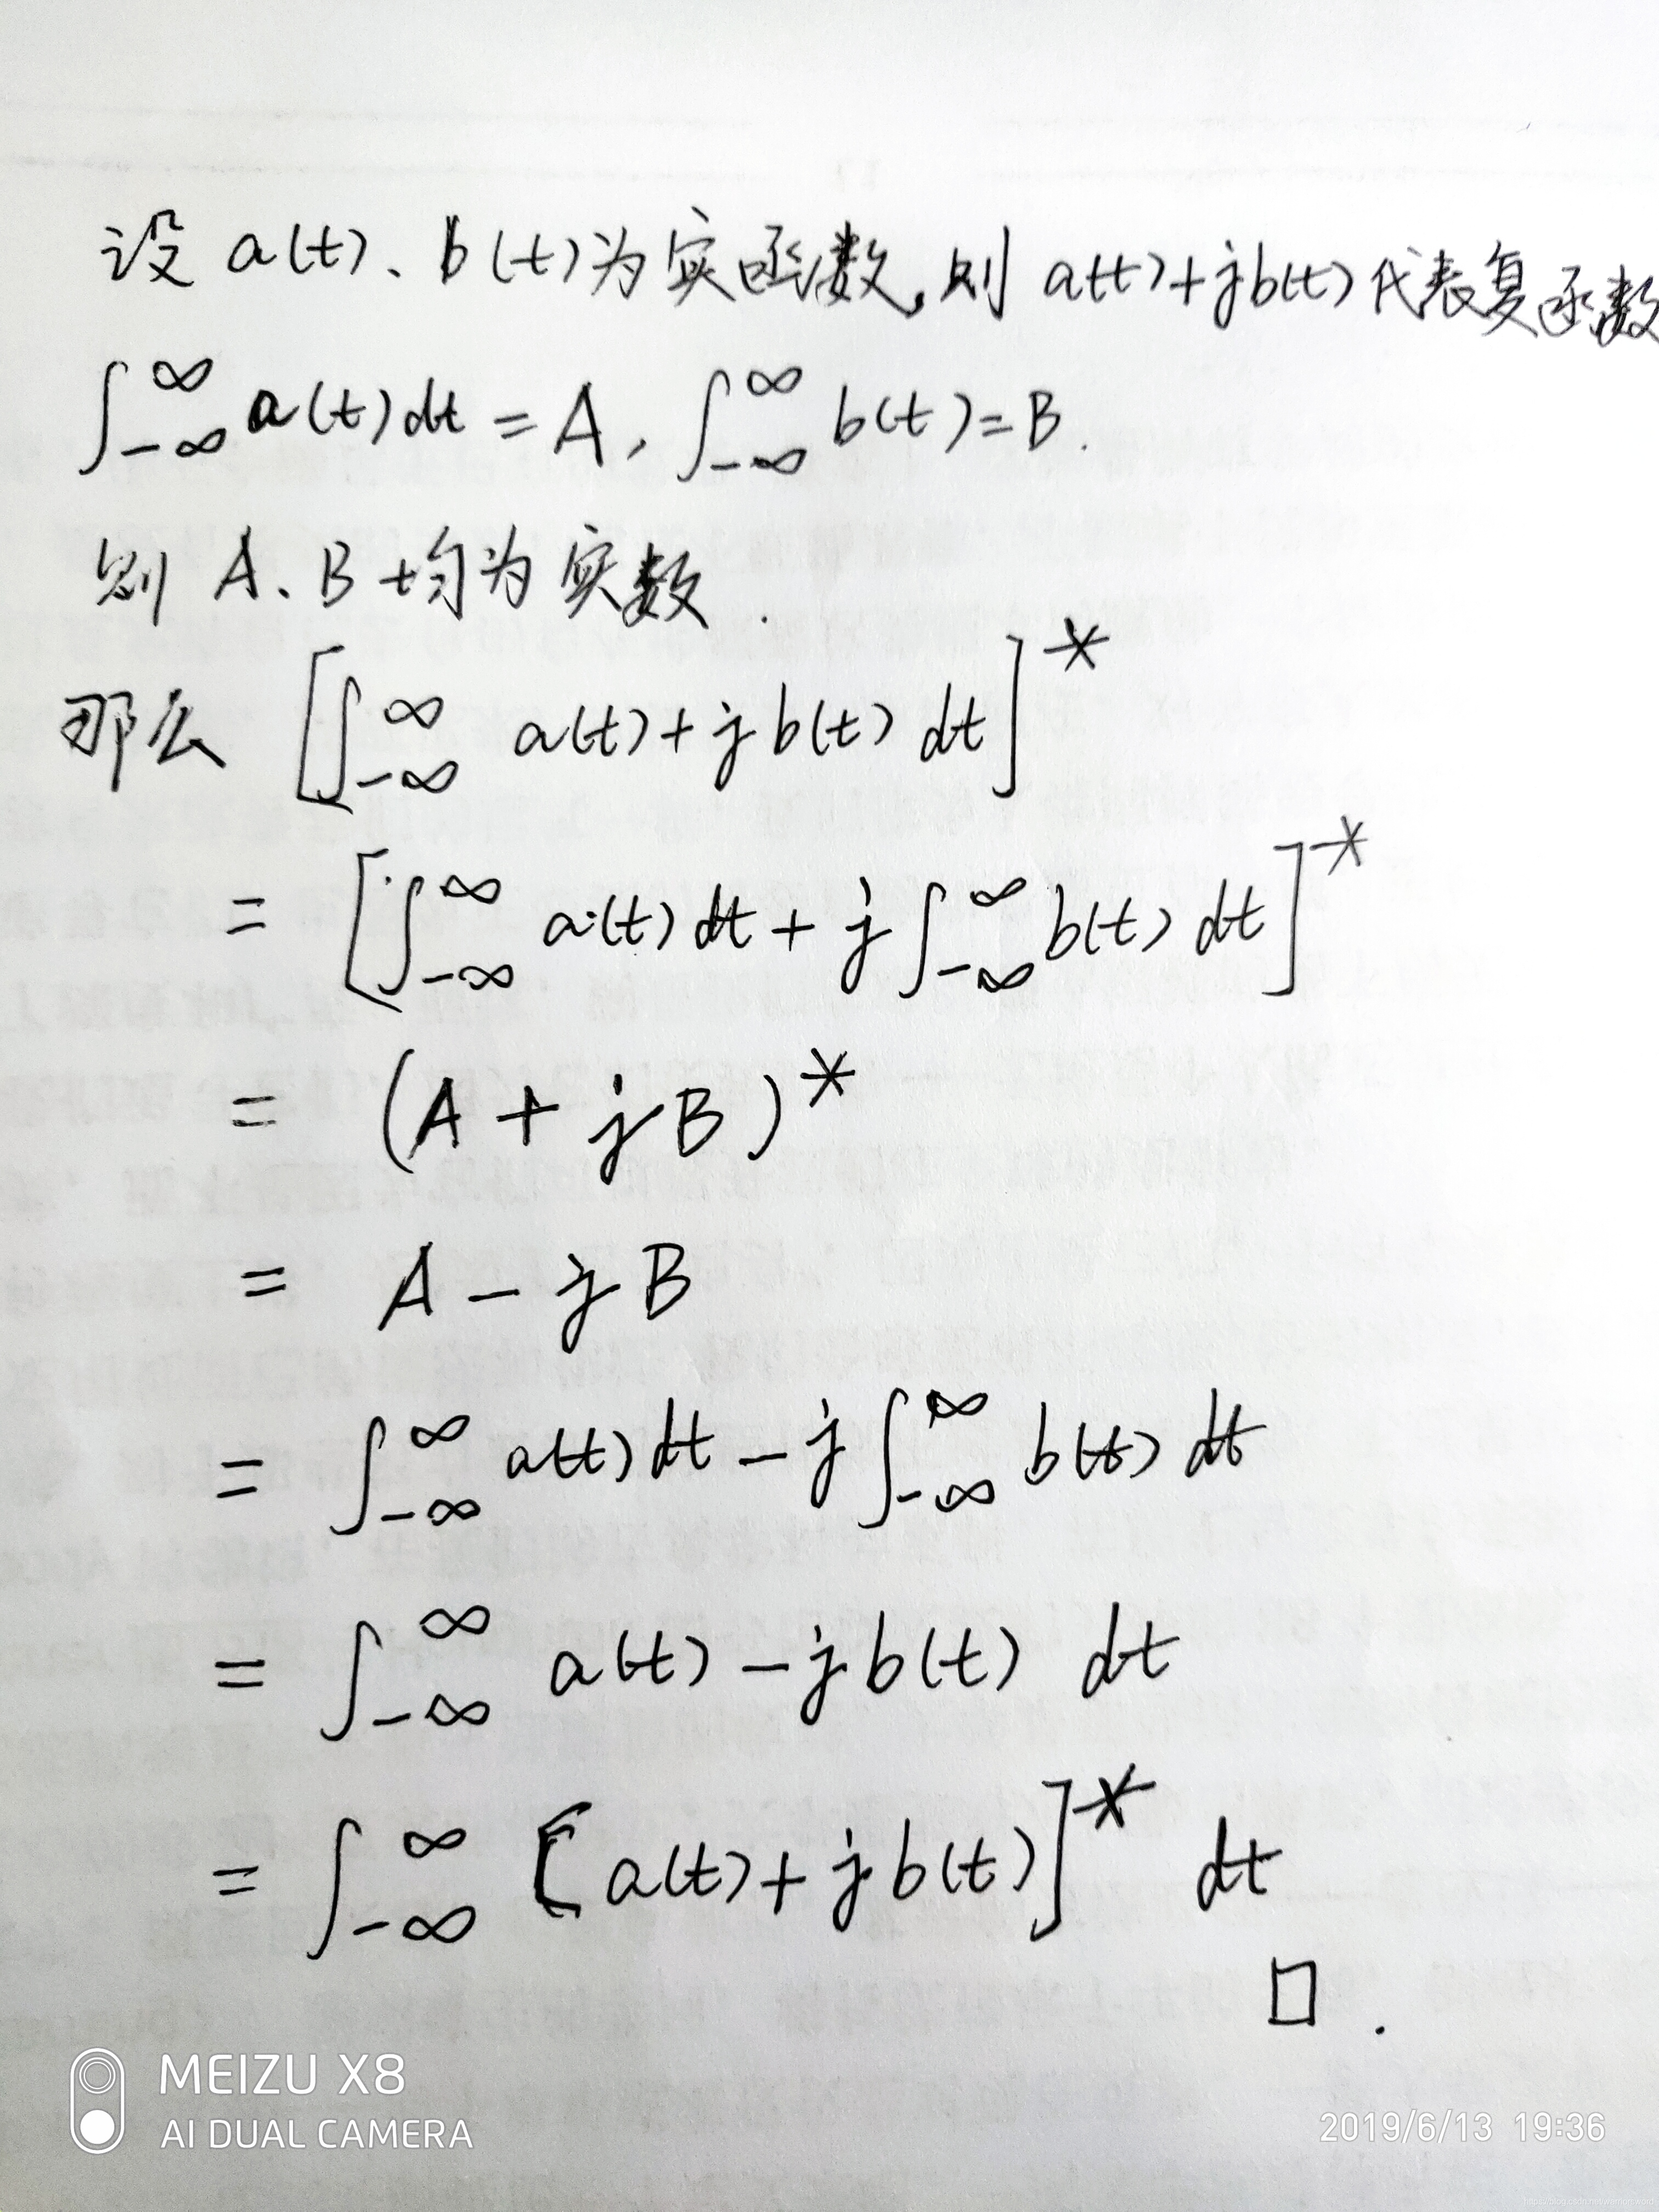 设 a(t)、b(t)为实函数,则 a(t)+jb(t)代表复函数
∫_{-∞}^{∞} a(t)dt = A, ∫_{-∞}^{∞} b(t)=B.
则 A、B均为实数.
那么 [∫_{-∞}^{∞} a(t)+jb(t) dt]*
= [∫_{-∞}^{∞} a(t)dt + j∫_{-∞}^{∞} b(t) dt]*
= (A + jB)*
= A - jB
= ∫_{-∞}^{∞} a(t)dt - j∫_{-∞}^{∞} b(t) dt
= ∫_{-∞}^{∞} a(t) - jb(t) dt
= ∫_{-∞}^{∞} [a(t)+jb(t)]* dt
□.
MEIZU X8
AI DUAL CAMERA
2019/6/13 19:36